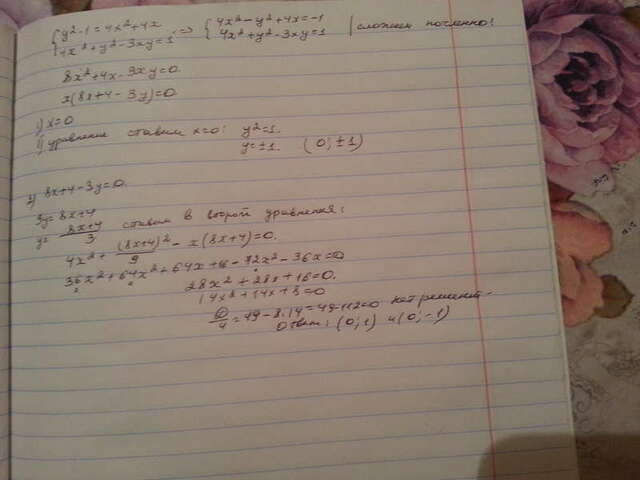 {y²-1=4x²+4x ⇔ {4x²-y²+4x=-1 | сложим почленно!
{4x²+y²-3xy=1 {4x²+y²-3xy=1
8x²+4x-3xy=0.
x(8x+4-3y)=0.
1) x=0
1) уравнение ставим x=0: y²=1.
y=±1. (0; ±1)
2) 8x+4-3y=0.
3y=8x+4
y=(8x+4)/3 ставим в второй уравнения:
4x²+(8x+4)²/9-x(8x+4)=0.
36x²+64x²+64x+16-72x²-36x=0
28x²+28x+16=0.
14x²+14x+8=0
D/4=49-8·14=49-112=0 нет решений.
Ответ: (0;1) и (0;-1)